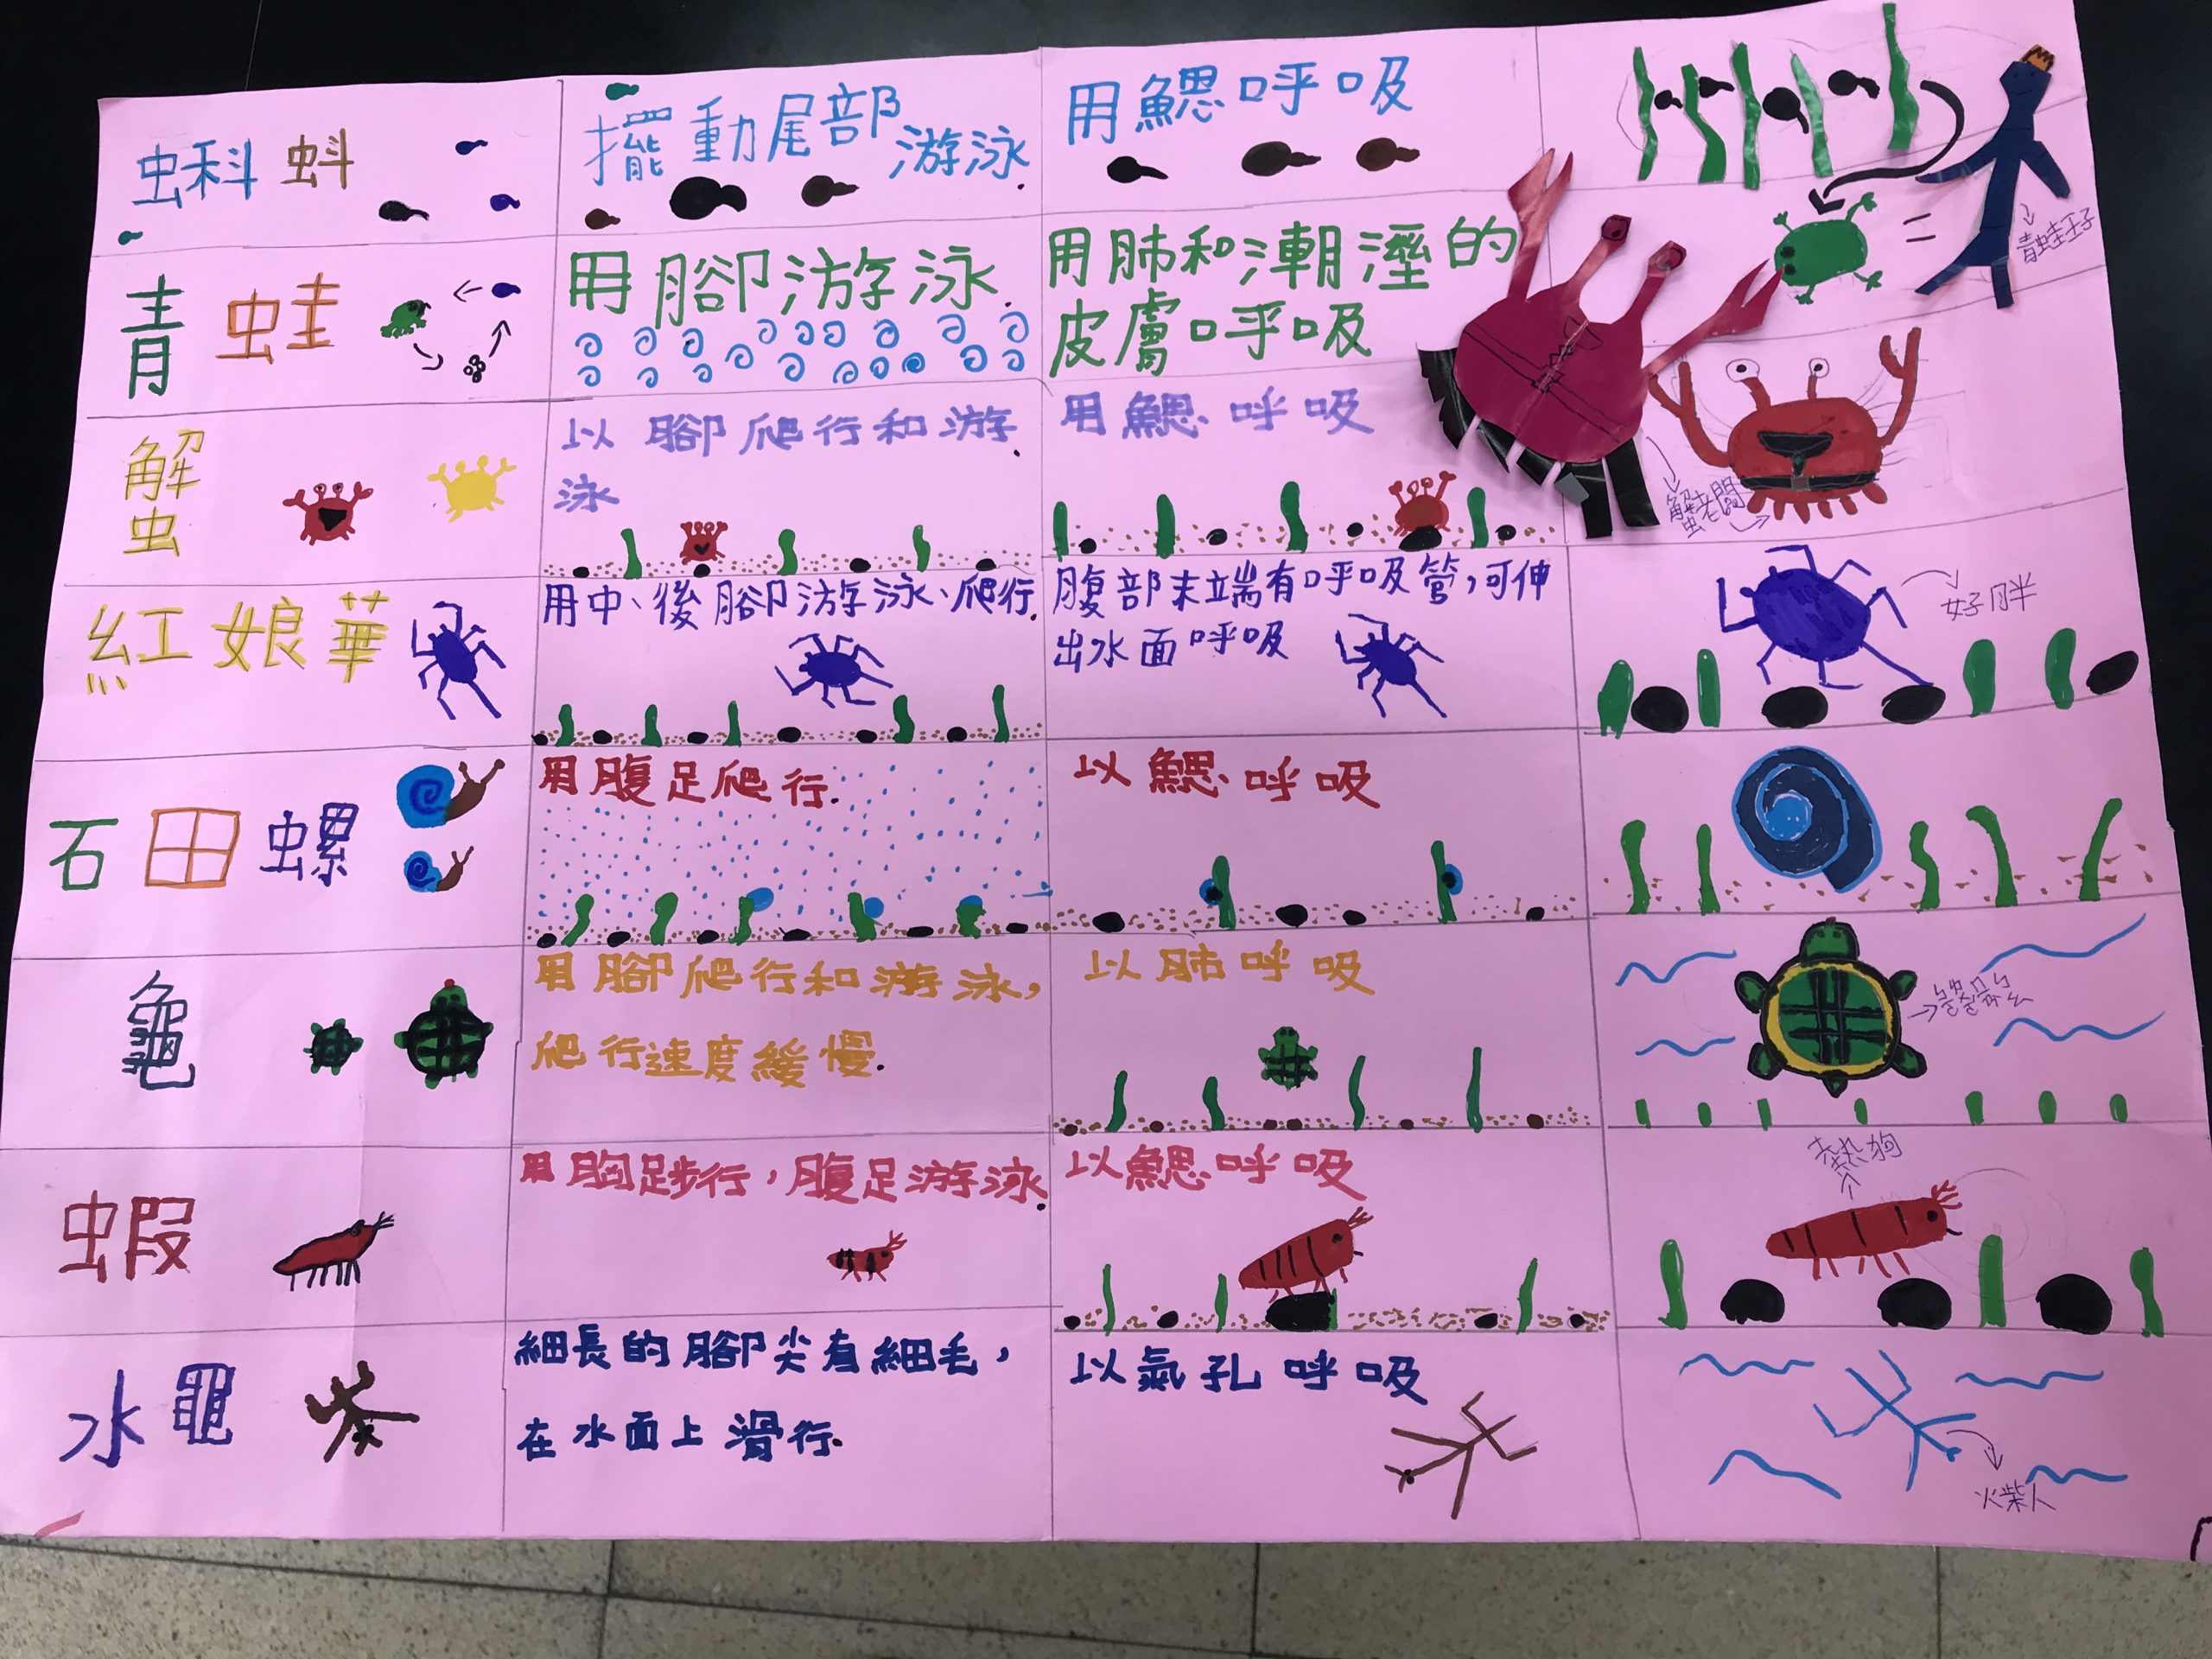 蝌蚪
擺動尾部游泳.
用鰓呼吸
青蛙王子
青蛙
用腳游泳.
用肺和潮溼的
皮膚呼吸
蟹
以腳爬行和游
泳.
用鰓呼吸
蟹老闆
紅娘華
用中、後腳游泳、爬行.
腹部末端有呼吸管,可伸
出水面呼吸
好胖
石田螺
用腹足爬行.
以鰓呼吸
龜
用腳爬行和游泳,
爬行速度緩慢.
以肺呼吸
蝦
用胸足步行,腹足游泳.
以鰓呼吸
熱狗
水黽
細長的腳尖有細毛,
在水面上滑行.
以氣孔呼吸
火柴人